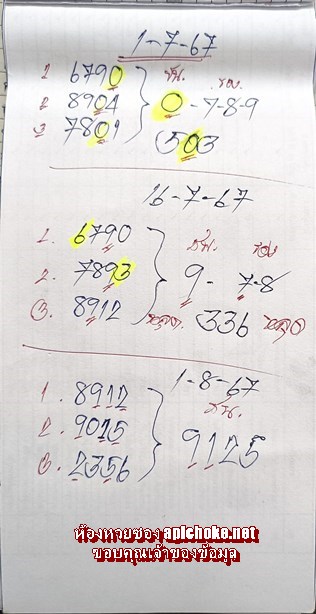 1-7-67
1. 6790 ชน. รอง
2. 8904 0-7-8-9
3. 7801 503
16-7-67
1. 6790 ชน. รอง
2. 7893 9-7-8
3. 8912 หลุด 336 หลุด
1-8-67
1. 8912 ชน.
2. 9015 9125
3. 2356
ห้องหวยซอง apichoke.net
ขอบคุณเจ้าของข้อมูล